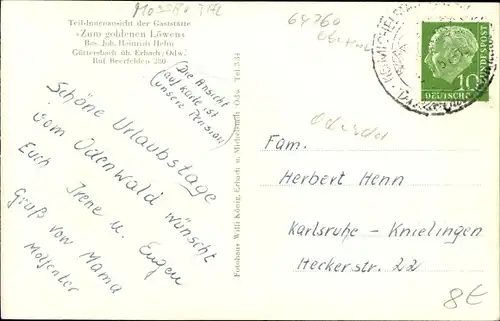 Teil-Innenansicht der Gaststätte
»Zum goldenen Löwen«
Bes. Joh. Heinrich Hehn
Güttersbach üb. Erbach, Odw.
Ruf Beerfelden 280
64760
(Die Ansicht
auf Karte ist
unsere Pension)
Schöne Urlaubstage
vom Odenwald wünscht
Euch Irene u. Eugen
Gruß von Mama
Fotohaus Willi König, Erbach u. Michelstadt, Odw. Tel. 334
DEUTSCHE BUNDESPOST
10
Fam.
Herbert Henn
Karlsruhe - Knielingen
Heckerstr. 22
8€